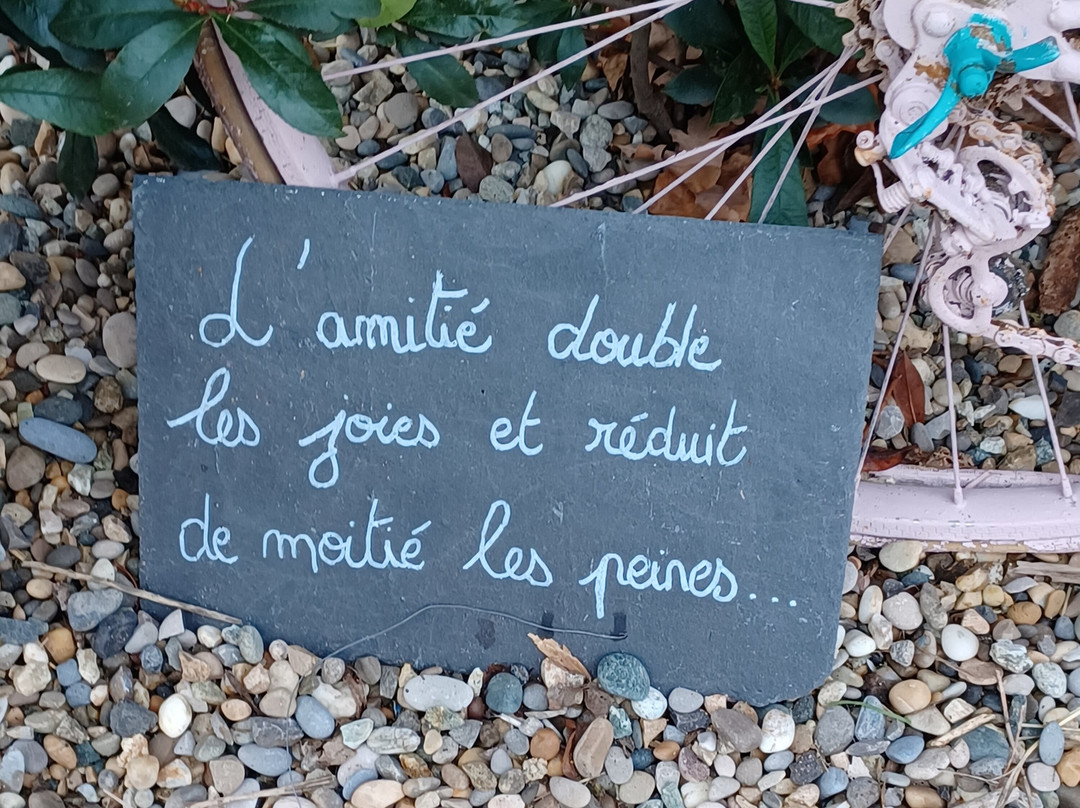 L'amitié double
les joies et réduit
de moitié les peines...